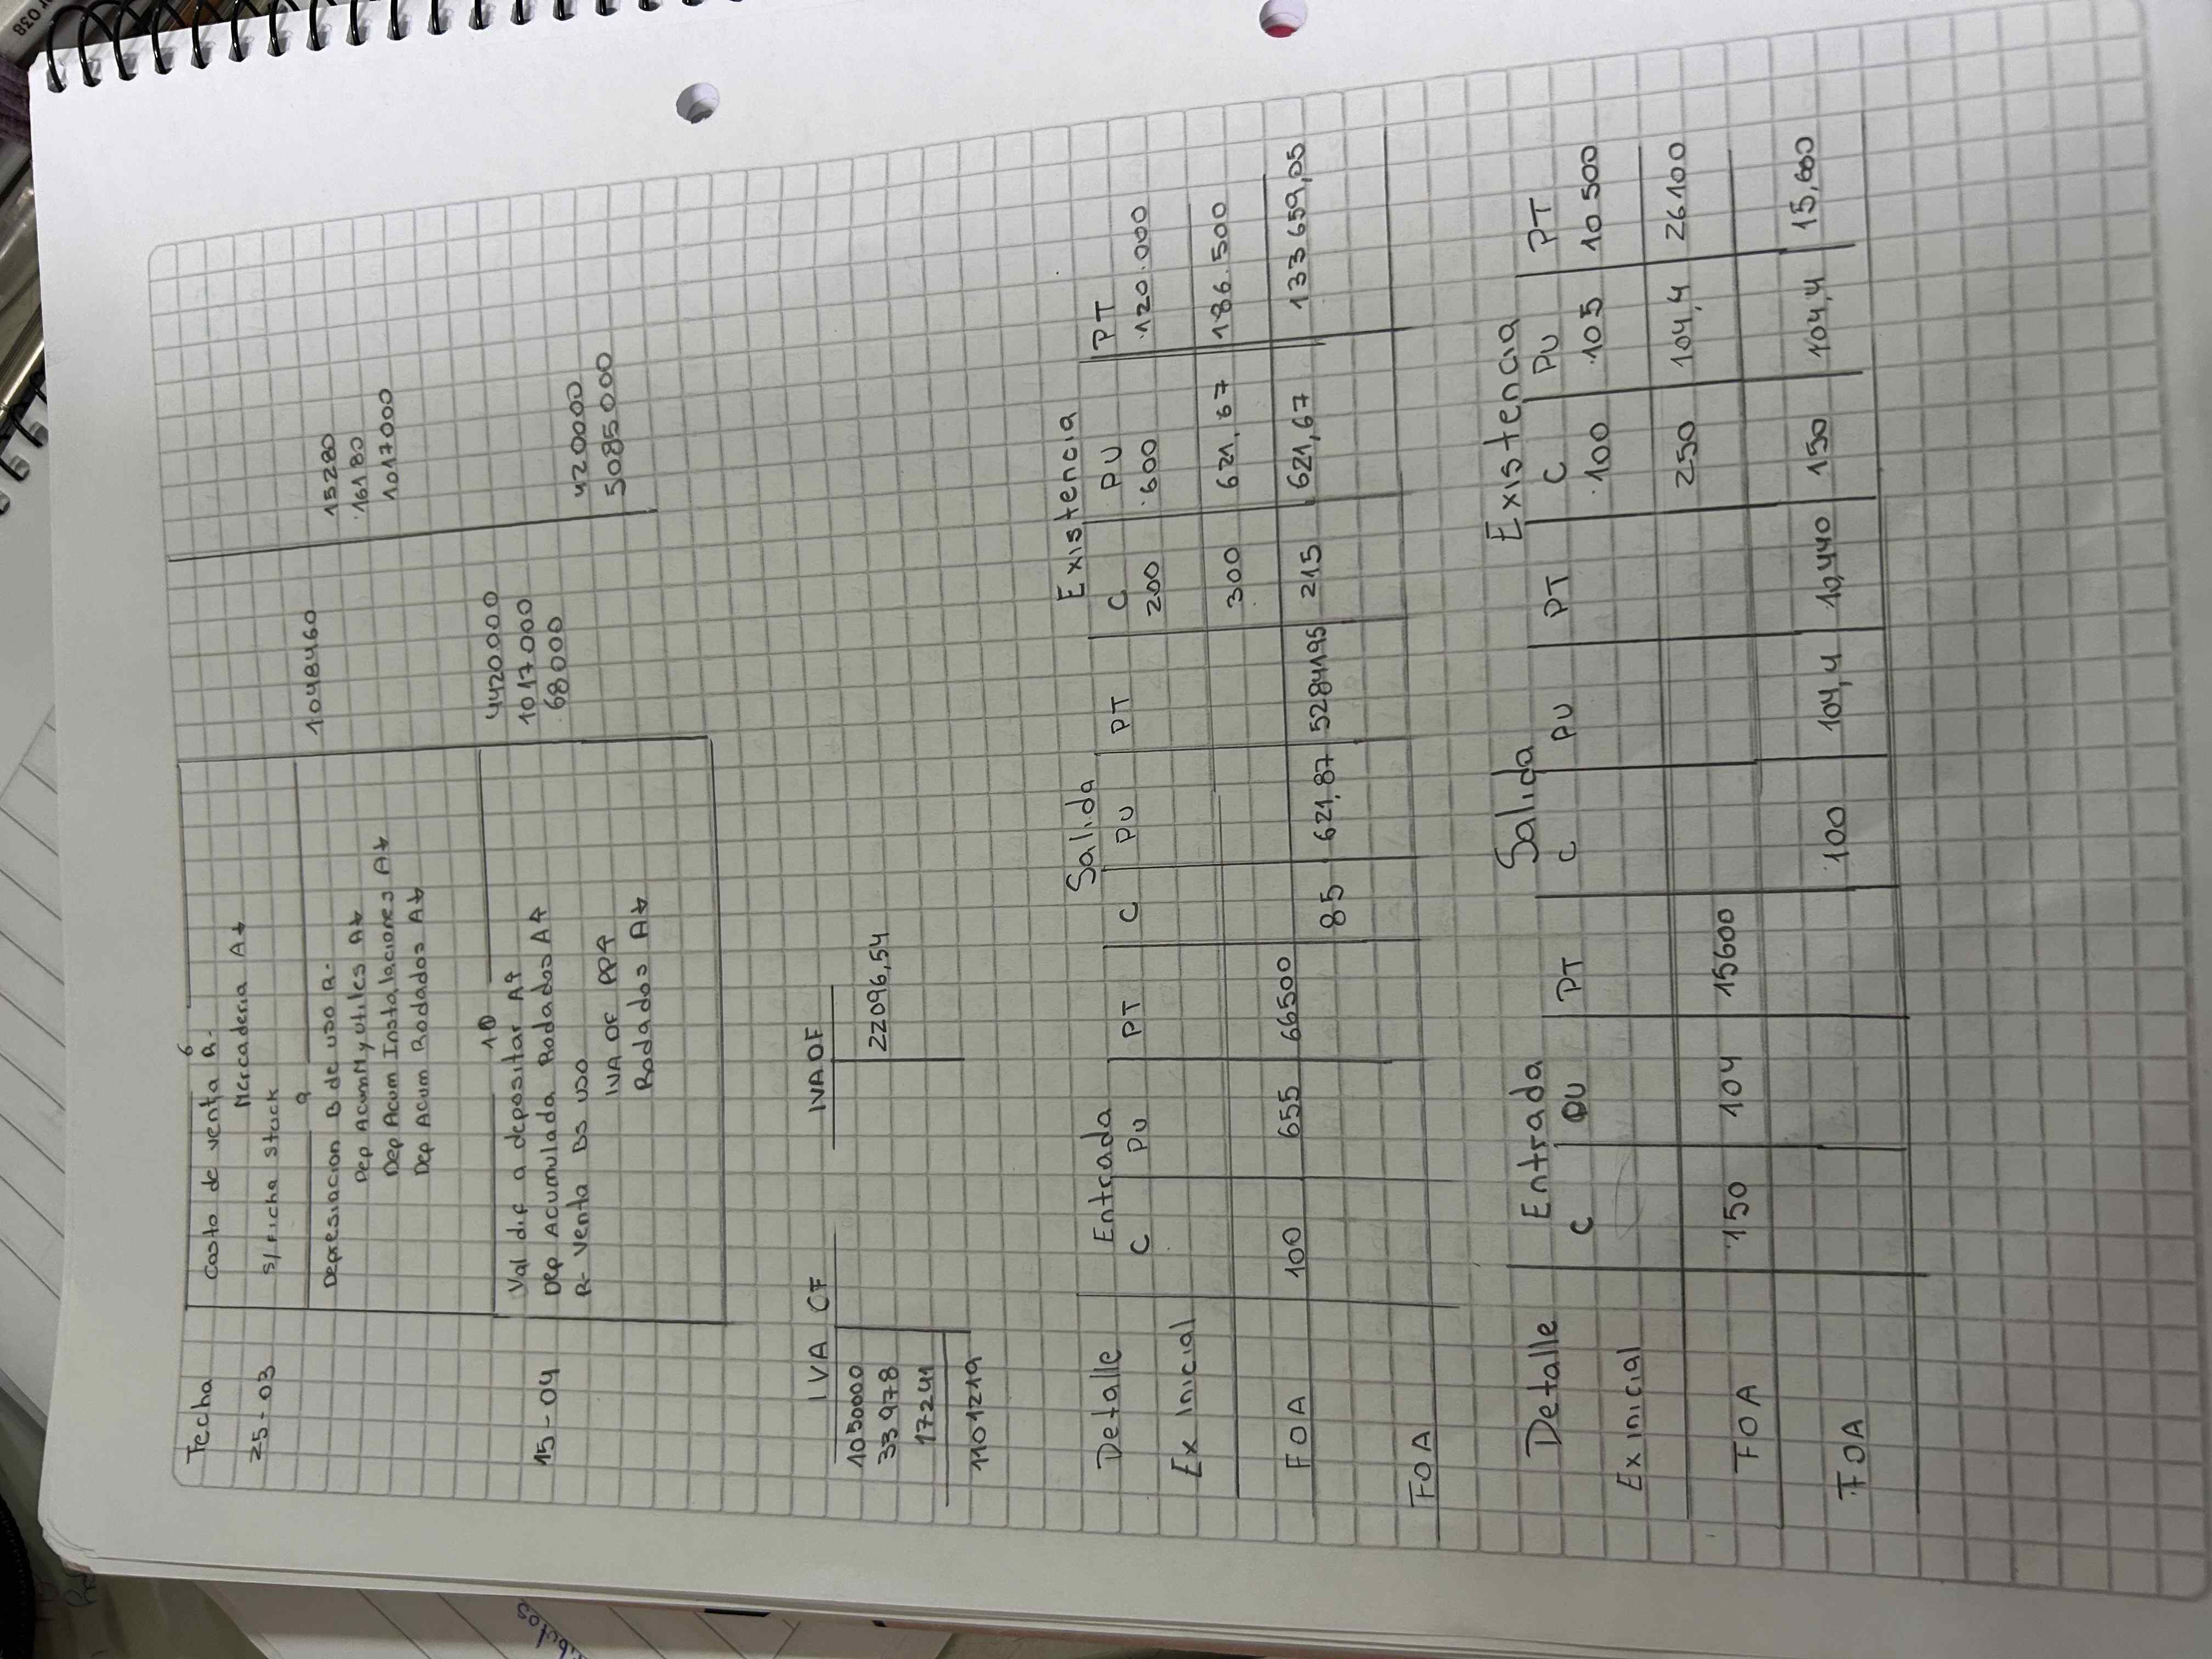 Fecha
6
25-03 Costo de venta R-
Mercaderia A↓
s/ ficha stock
9
Depresiacion B de uso R- 1048460
Dep Acum M y utiles A↓ 15280
Dep Acum Instalaciones A↓ 16180
Dep Acum Rodados A↓ 1017000
10
15-04 Val dif a depositar A↑ 4420000
Dep Acumulada Rodados A↑ 1017000
R- Venta Bs uso 68000
IVA DF PP↑ 420000
Rodados A↓ 5085000
IVA CF IVA DF
1050000 22096,54
33978
17241
1101219
Detalle Entrada Salida Existencia
C PU PT C PU PT C PU PT
Ex Inicial 200 600 120.000
FOA 100 655 66500 300 621,67 186.500
FOA 85 621,87 5284195 215 621,67 133659,05
Detalle Entrada Salida Existencia
C PU PT C PU PT C PU PT
Ex Inicial 100 105 10500
FOA 150 104 15600 250 104,4 26100
FOA 100 104,4 10,440 150 104,4 15,660